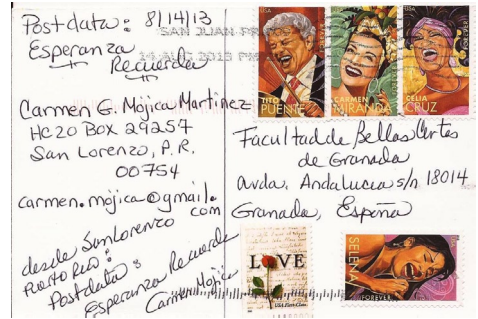 Postdata: 8/14/13
Esperanza
Recuerda
SAN JUAN PR
14 AUG 2013 PM
Carmen G. Mojica Martinez
HC20 Box 29257
San Lorenzo, P.R.
00754
carmen.mojica@gmail.
com
desde San Lorenzo
Puerto Rico:
Postdata:
Esperanza Recuerda
Carmen Mojica
USA
TITO
PUENTE
FOREVER
CARMEN
MIRANDA
FOREVER
CELIA
CRUZ
Facultad de Bellas Artes
de Granada
avda. Andalucia s/n 18014
Granada, España
LOVE
USA First-Class
SELENA
FOREVER